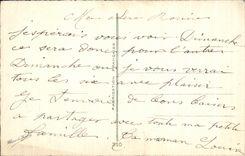 Mes chers
j'espérais vous voir Dimanche
ce sera donc pour l'autre
Dimanche ou je vous verai
tous les six avec plaisir
Je
a partager avec toute ma petite
famille. La maman Louise